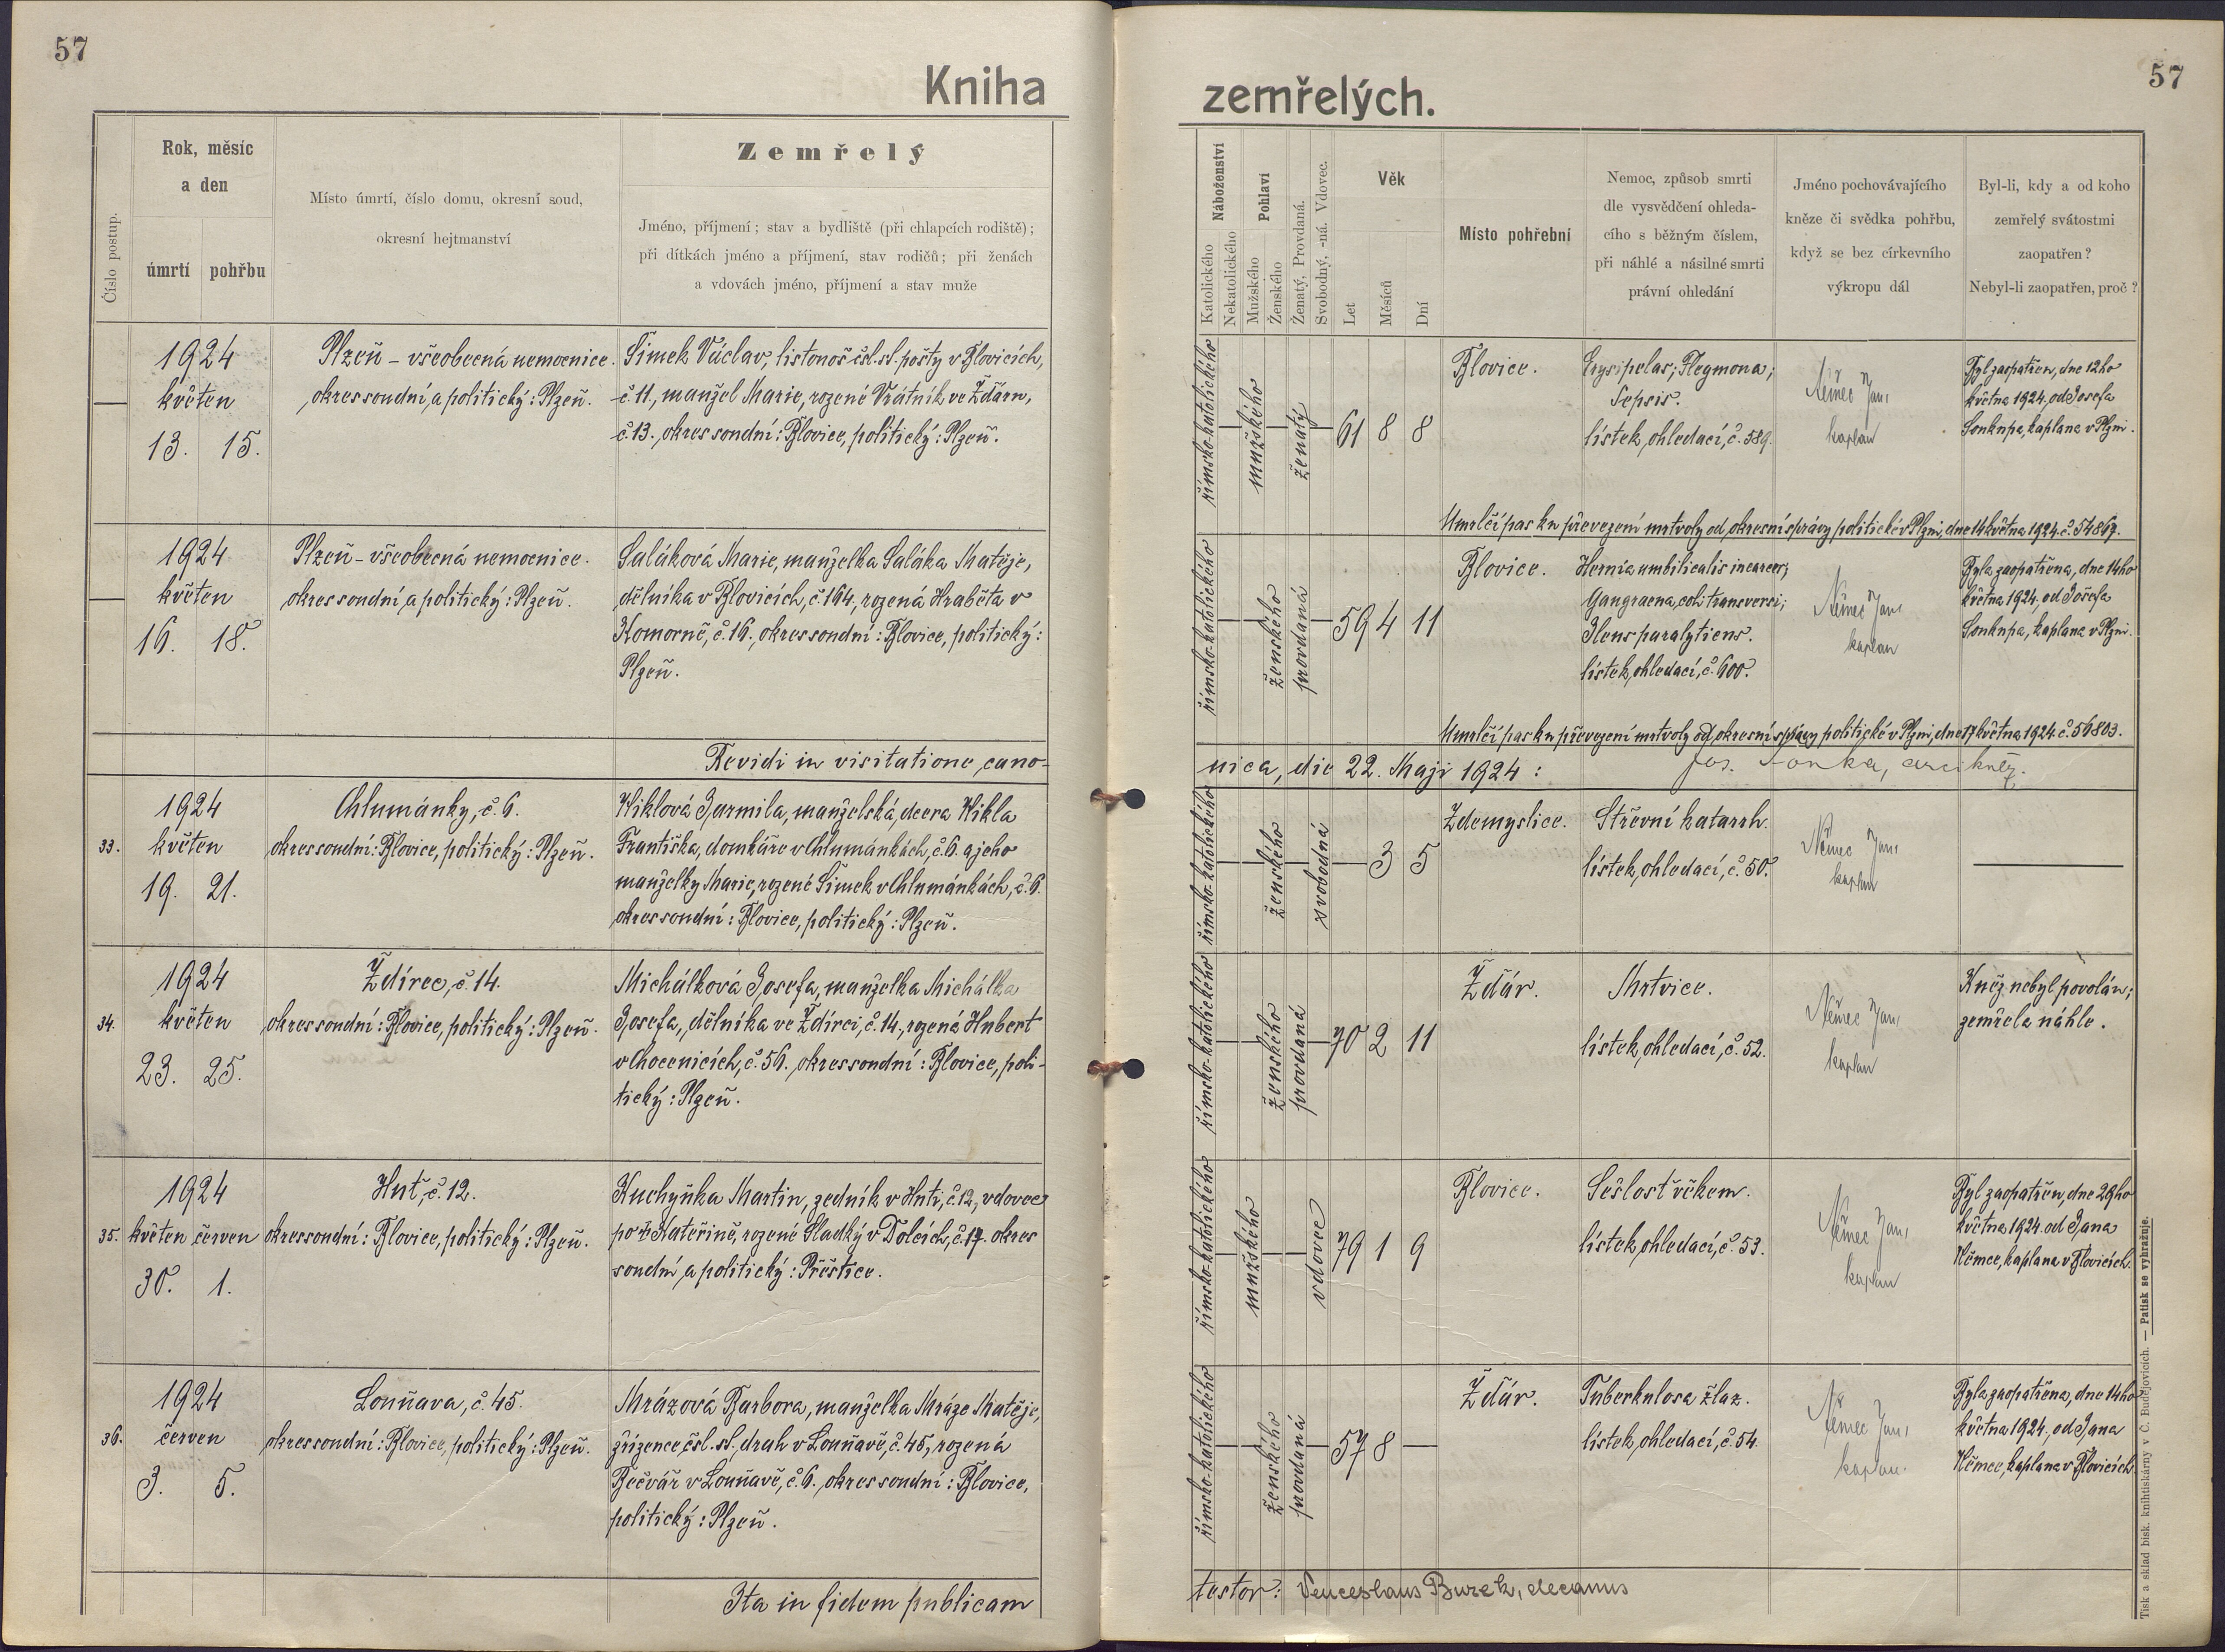 57
Kniha
Číslo postup.
Rok, měsíc
a den
úmrtí pohřbu
Místo úmrtí, číslo domu, okresní soud,
okresní hejtmanství
Zemřelý
Jméno, příjmení; stav a bydliště (při chlapcích rodiště);
při dítkách jméno a příjmení, stav rodičů; při ženách
a vdovách jméno, příjmení a stav muže
1924
květen
13. 15.
Plzeň – všeobecná nemocnice.
okres soudní a politický: Plzeň.
Šimek Václav, listonoš čsl. st. pošty v Blovicích,
č. 11, manžel Marie, rozené Vrátník ve Žďáru,
č. 13. okres soudní: Blovice, politický: Plzeň.
1924
květen
16. 18.
Plzeň – všeobecná nemocnice.
okres soudní a politický: Plzeň.
Saláková Marie, manželka Saláka Matěje,
dělníka v Blovicích, č. 164, rozená Hraběta v
Komorně, č. 16. okres soudní: Blovice, politický:
Plzeň.
Revidi in visitatione cano-
33.
1924
květen
19. 21.
Chlumánky, č. 6.
okres soudní: Blovice, politický: Plzeň.
Wiklová Jarmila, manželská dcera Wikla
Františka, domkáře v Chlumánkách, č. 6. a jeho
manželky Marie, rozené Šimek v Chlumánkách, č. 6.
okres soudní: Blovice, politický: Plzeň.
34.
1924
květen
23. 25.
Ždírec, č. 14.
okres soudní: Blovice, politický: Plzeň.
Michálková Josefa, manželka Michálka
Josefa, dělníka ve Ždírci, č. 14, rozená Hubert
v Chocenicích, č. 56. okres soudní: Blovice, poli-
tický: Plzeň.
35.
1924
květen červen
30. 1.
Huť, č. 12.
okres soudní: Blovice, politický: Plzeň.
Kuchyňka Martin, zedník v Huti, č. 12, vdovec
po Kateřině, rozené Sladký v Dolcích, č. 17. okres
soudní a politický: Přeštice.
36.
1924
červen
3. 5.
Louňava, č. 45.
okres soudní: Blovice, politický: Plzeň.
Mrázová Barbora, manželka Mráze Matěje,
zřízence čsl. st. drah v Louňavě, č. 45, rozená
Bečvář v Louňavě, č. 6. okres soudní: Blovice,
politický: Plzeň.
Ita in fidem publicam
57
zemřelých.
Náboženství
Katolického
Nekatolického
Pohlaví
Mužského
Ženského
Ženatý, Provdaná.
Svobodný, -ná. Vdovec.
Věk
Let
Měsíců
Dní
Místo pohřební
Nemoc, způsob smrti
dle vysvědčení ohleda-
cího s běžným číslem,
při náhlé a násilné smrti
právní ohledání
Jméno pochovávajícího
kněze či svědka pohřbu,
když se bez církevního
výkropu dál
Byl-li, kdy a od koho
zemřelý svátostmi
zaopatřen?
Nebyl-li zaopatřen, proč?
římsko-katolického
mužského
ženatý
61 8 8
Blovice.
Erysipelas; Flegmona;
Sepsis.
lístek ohledací, č. 589.
Němec Jan,
kaplan
Byl zaopatřen, dne 12ho
května 1924. od Josefa
Soukupa, kaplana v Plzni.
Umrlčí pas ku převezení mrtvoly od okresní správy politické v Plzni, dne 14 května 1924. č. 54867.
římsko-katolického
ženského
provdaná
59 4 11
Blovice.
Hernia umbilicalis incarcer;
Gangraena coli transversi;
Ileus paralyticus.
lístek ohledací, č. 600.
Němec Jan,
kaplan
Byla zaopatřena, dne 14ho
května 1924, od Josefa
Soukupa, kaplana v Plzni.
Umrlčí pas ku převezení mrtvoly od okresní správy politické v Plzni, dne 17 května 1924. č. 56803.
nica, die 22. Maji 1924: Jos. Fonka, arcikněz.
římsko-katolického
ženského
svobodná
3 5
Zdemyslice.
Střevní katarrh.
lístek ohledací, č. 50.
Němec Jan,
kaplan
římsko-katolického
ženského
provdaná
70 2 11
Žďár.
Mrtvice.
lístek ohledací, č. 52.
Němec Jan,
kaplan
Kněz nebyl povolán;
zemřela náhle.
římsko-katolického
mužského
vdovec
79 1 9
Blovice.
Sešlost věkem.
lístek ohledací, č. 53.
Němec Jan,
kaplan
Byl zaopatřen, dne 29ho
května 1924. od Jana
Němce, kaplana v Blovicích.
římsko-katolického
ženského
provdaná
57 8 —
Žďár.
Tuberkulosa žlaz.
lístek ohledací, č. 54.
Němec Jan,
kaplan.
Byla zaopatřena, dne 14ho
května 1924. od Jana
Němce, kaplana v Blovicích.
testor: Venceslaus Burek, decanus
Tisk a sklad bisk. knihtiskárny v Č. Budějovicích. — Patisk se vyhražuje.